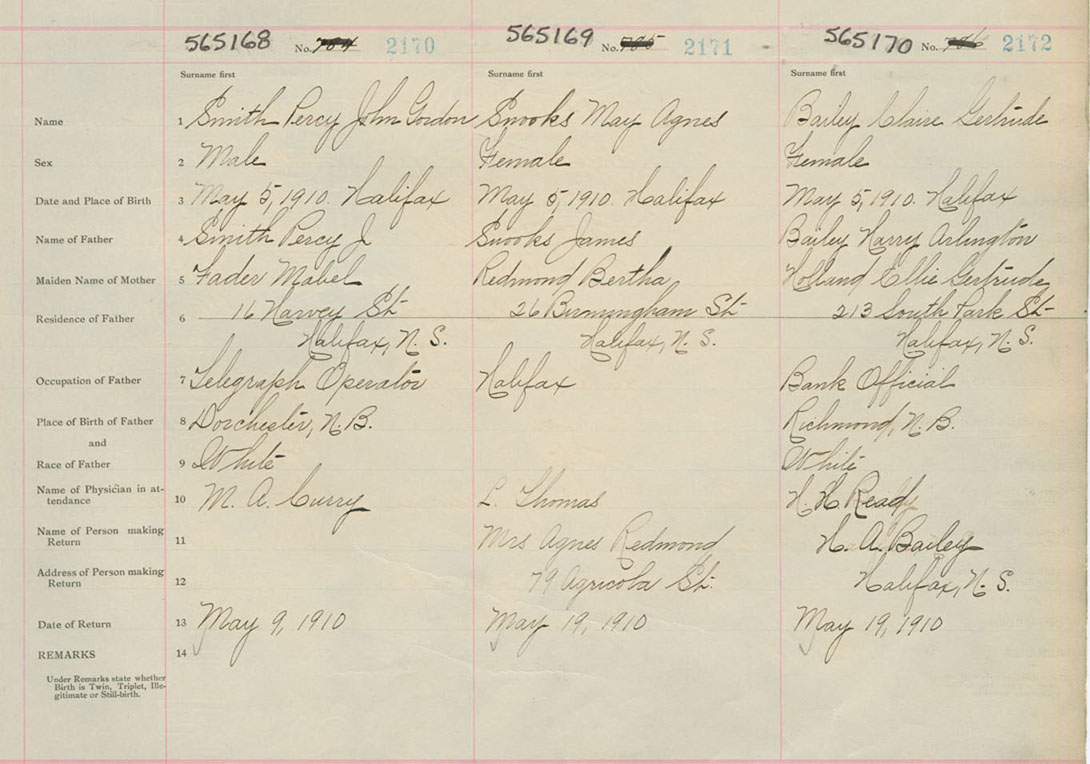 565168 No. 784 2170 565169 No. 785 2171 565170 No. 786 2172
Surname first Surname first Surname first
Name 1 Smith Percy John Gordon Snooks May Agnes Bailey Claire Gertrude
Sex 2 Male Female Female
Date and Place of Birth 3 May 5, 1910. Halifax May 5, 1910. Halifax May 5, 1910. Halifax
Name of Father 4 Smith Percy J Snooks James Bailey Harry Arlington
Maiden Name of Mother 5 Fader Mabel Redmond Bertha Holland Ellie Gertrude
Residence of Father 6 16 Harvey St 26 Birmingham St 213 South Park St
Halifax, N.S. Halifax, N.S. Halifax, N.S.
Occupation of Father 7 Telegraph Operator Halifax Bank Official
Place of Birth of Father 8 Dorchester, N.B. Richmond, N.B.
and
Race of Father 9 White White
Name of Physician in at-
tendance 10 M. A. Curry L. Thomas H. H. Read
Name of Person making
Return 11 Mrs Agnes Redmond H. A. Bailey
Address of Person making
Return 12 79 Agricola St. Halifax, N.S.
Date of Return 13 May 9, 1910 May 19, 1910 May 19, 1910
REMARKS 14
Under Remarks state whether
Birth is Twin, Triplet, Ille-
gitimate or Still-birth.